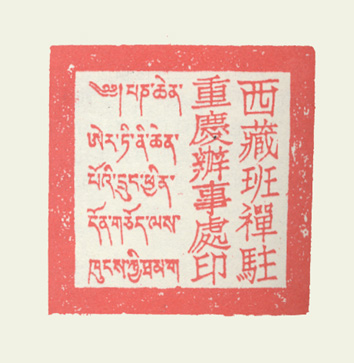 西藏班禪駐
重慶辦事處印
༄༅། །པཎ་ཆེན་
ཨེར་ཏི་ནི་ཆེན་
པོའི་དྲུང་ཕྱིན་
དོན་གཅོད་ལས་
ཁུངས་ཀྱི་ཐམ་ག